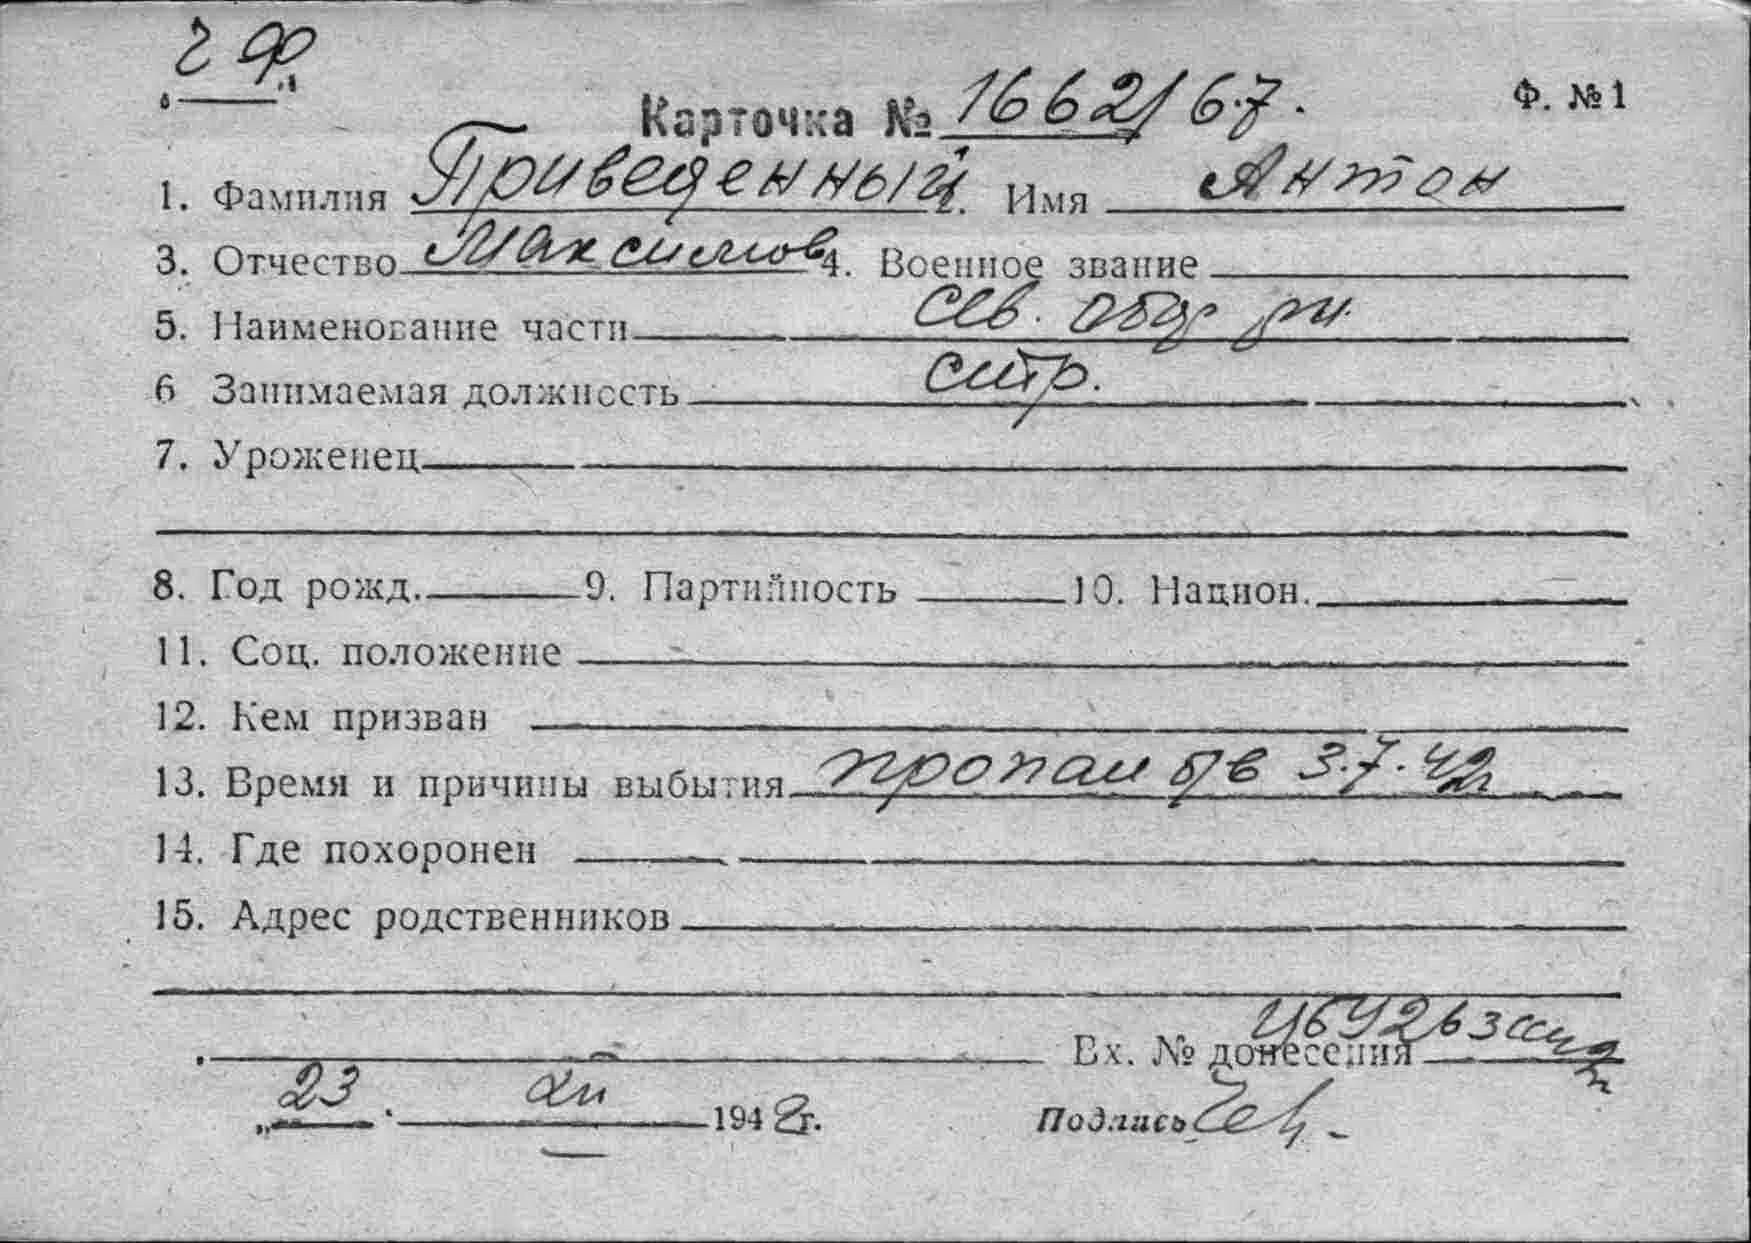 ч ф
Карточка № 1662/67. Ф. №1
1. Фамилия Приведенный. Имя Антон
3. Отчество Максимов 4. Военное звание
5. Наименование части сев. обор рн.
6 Занимаемая должность стр.
7. Уроженец
8. Год рожд. 9. Партийность 10. Национ.
11. Соц. положение
12. Кем призван
13. Время и причины выбытия пропал б/в 3.7.42г
14. Где похоронен
15. Адрес родственников
Вх. № донесения
„23 . 194 г.
Подпись